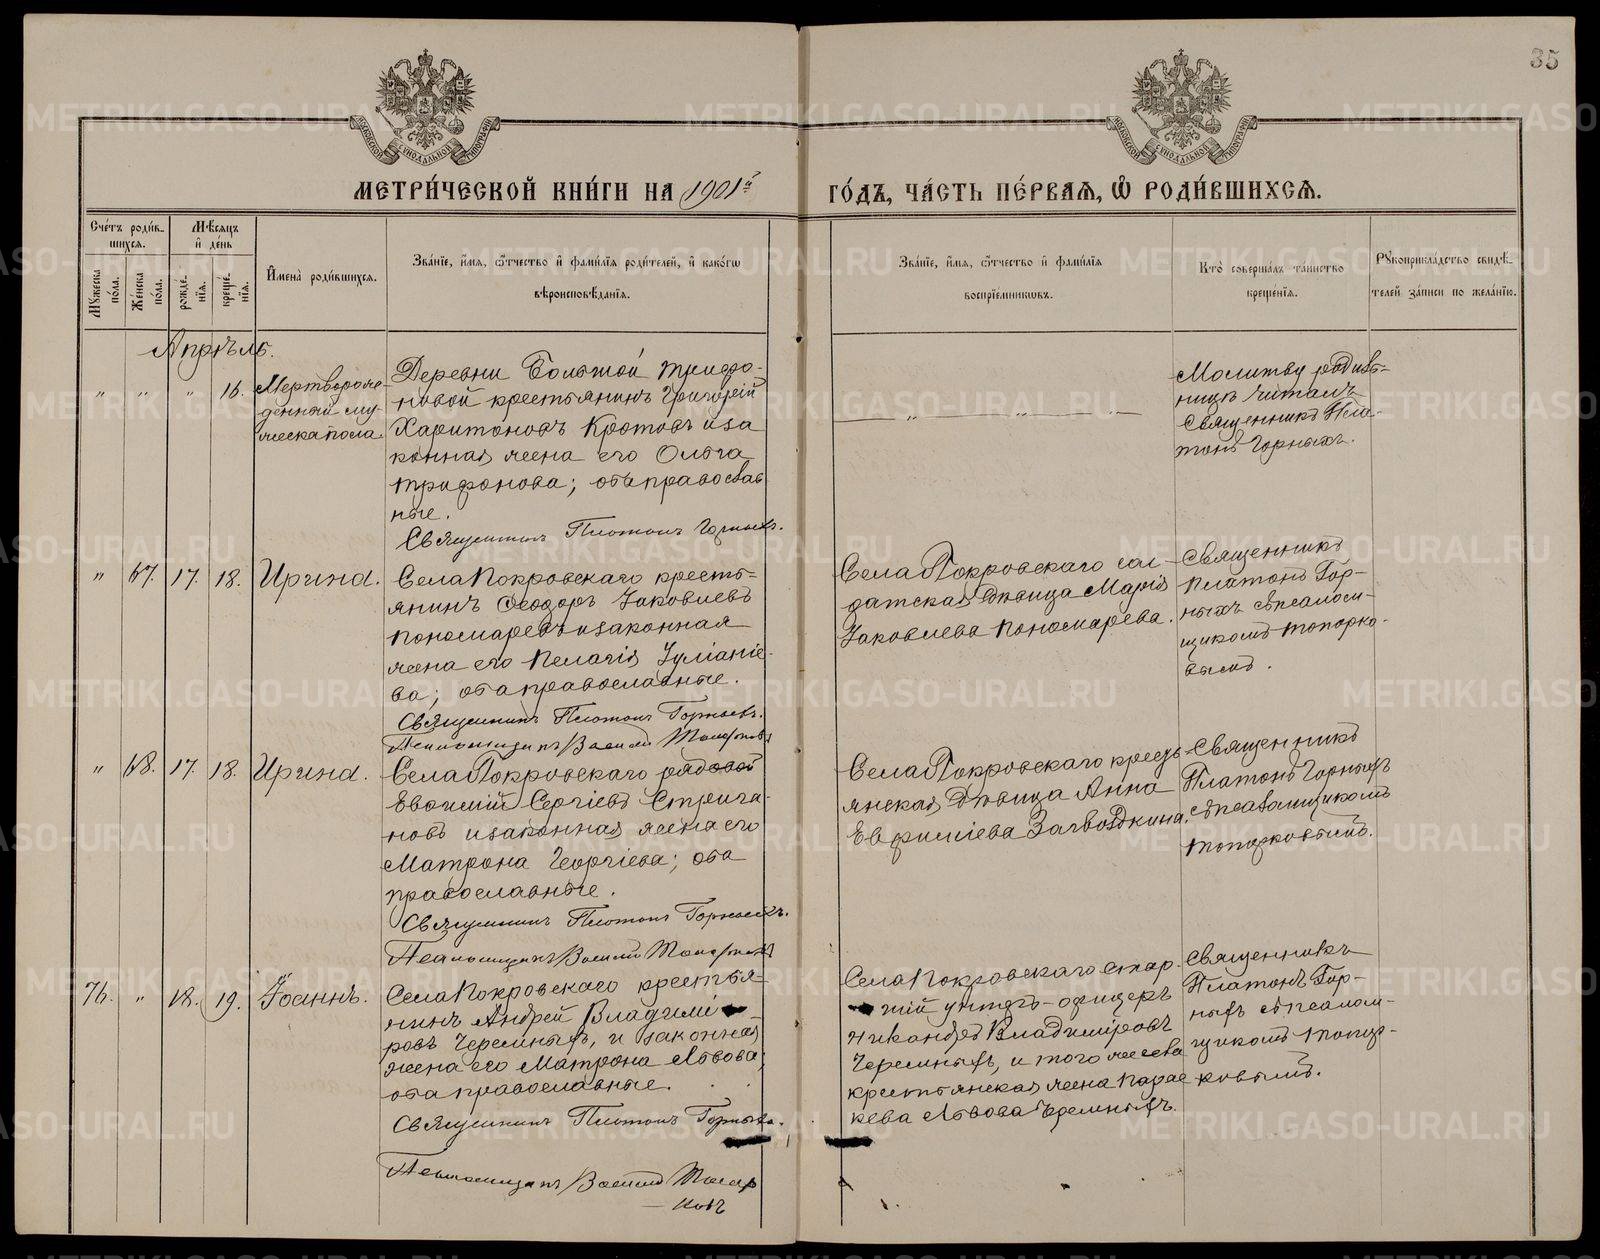 35
МЕТРИ́ЧЕСКОЙ КНИ́ГИ НА 1901й ГО́ДЪ, ЧА́СТЬ ПЕ́РВАЯ, Ѡ҆ РОДИ́ВШИХСЯ.
Сче́тъ роди́в-
шихся.
Мѣ́сяцъ
и҆ де́нь
Мꙋ́жеска по́ла.
Же́нска по́ла.
рожде́-
нїя.
креще́-
нїя.
И҆мена̀ роди́вшихся.
Зва́нїе, и҆́мя, ѻ҆́тчество и҆ фами́лїя роди́телей, и҆ како́гѡ
вѣроисповѣ́данїя.
Зва́нїе, и҆́мя, ѻ҆́тчество и҆ фами́лїя
воспрїе́мникѡвъ.
Кто̀ соверша́лъ та́инство
креще́нїя.
Рꙋкоприкла́дство свидѣ́-
телей за́писи по жела́нїю.
Апрѣль.
" " " 16.
Мертворож-
денный му-
жеска пола.
Деревни Большой Трифо-
новой крестьянинъ Григорій
Харитоновъ Кротовъ и за
конная жена его Ольга
Трифонова; оба православ
ные.
Священникъ Платонъ Горныхъ.
" " "
Молитву родиль-
ницѣ читалъ
Священникъ Пла-
тонъ Горныхъ.
" 67. 17. 18. Ирина.
Села Покровскаго кресть-
янинъ Ѳеодоръ Іаковлевъ
Пономаревъ и законная
жена его Пелагія Іуліаніе-
ва; оба православные.
Священникъ Платонъ Горныхъ.
Псаломщикъ Василій Топорковъ
Села Покровскаго сол-
датская дѣвица Марія
Іаковлева Пономарева.
Священникъ
Платонъ Гор-
ныхъ съ псалом-
щикомъ Топорко-
вымъ.
" 68. 17. 18. Ирина.
Села Покровскаго рядовой
Евѳимій Сергіевъ Стрига-
новъ и законная жена его
Матрона Георгіева; оба
православные.
Священникъ Платонъ Горныхъ.
Псаломщикъ Василій Топорковъ
Села Покровскаго кресть-
янская дѣвица Анна
Евфиміева Загвоздкина.
Священникъ
Платонъ Горныхъ
съ псаломщикомъ
Топорковымъ.
76. " 18. 19. Іоаннъ.
Села Покровскаго крестья-
нинъ Андрей Владимі-
ровъ Черемныхъ, и законная
жена его Матрона Львова;
оба православные.
Священникъ Платонъ Горныхъ.
Псаломщикъ Василій Топор
ковъ
Села Покровскаго стар-
шій унтеръ-офицеръ
Никандръ Владиміровъ
Черемныхъ, и того же села
крестьянская жена Парас
кева Львова Черемныхъ.
Священникъ
Платонъ Гор-
ныхъ съ псалом-
щикомъ Топор-
ковымъ.
METRIKI.GASO-URAL.RU